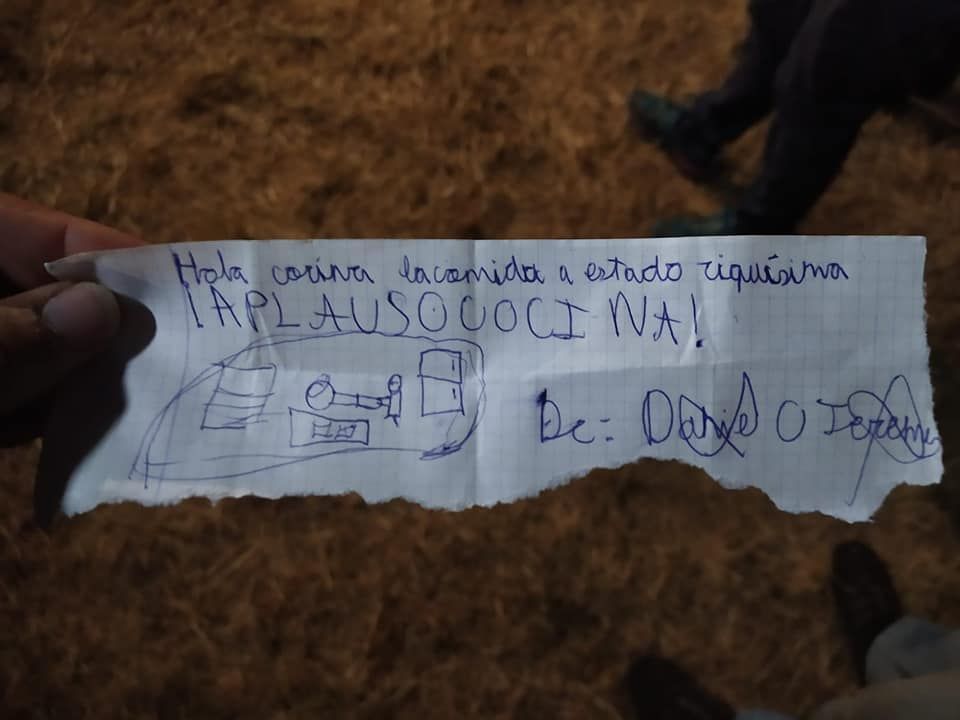 Hola cocina la comida a estado riquísima
¡APLAUSO COCINA!
De: Daniel O